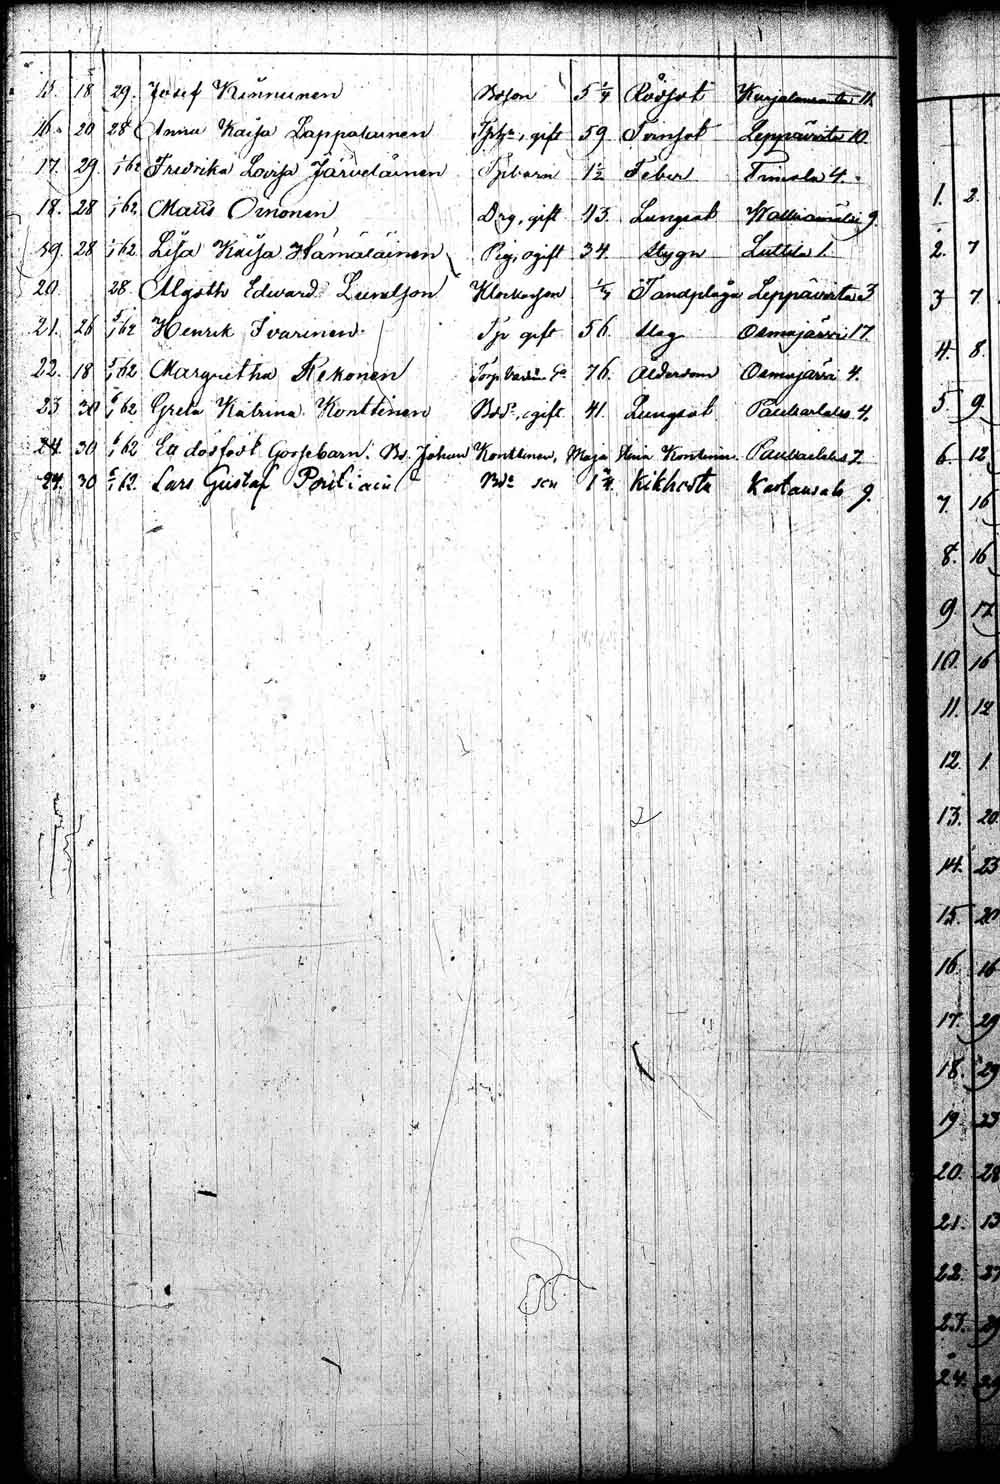 15. 18 29. Josef Kinnunen Bdson 5 1/4 Rödsot Kurjalanranta 11.
16. 20 28 Anna Kaisa Lappalainen gift 59 Tvinsot Leppävirta 10.
17. 29. 1/62 Fredrika Lovisa Järveläinen Tpbarn 1 1/2 Feber Timola 4.
18. 28 1/62 Matts Oinonen Drg, gift 43. Lungsot 9.
19. 28 1/62 Lisa Kaisa Hämäläinen Pig, ogift 34. Slygn Luttila 1.
20. 28. Algoth Edward Lundson Klockarson Tandplåga Leppävirta 3
21. 26 1/62 Henrik Ivarinen Tp gift 56. Slag Osmajärvi 17.
22. 18 1/62 Margretha Rekonen 76. Ålderdom Osmajärvi 4.
23 30 1/62 Greta Katrina Konttinen gift 41. Lungsot Paukarlaks 4.
24 30 1/62 Ett dödfödt Gossebarn. Bd. Johan Konttinen, Maja Stina Konttinen. Paukarlaks 7.
24. 30 1/62. Lars Gustaf son Kikhosta 9.
1. 2.
2. 7
3 7.
4. 8.
5 9.
6. 12
7. 16
8. 16
9. 17
10. 16
11. 12
12. 1.
13. 20.
14. 23
15. 20
16. 16
17. 29
18. 29
19 23
20. 28
21. 13
22. 27
23. 29
24.